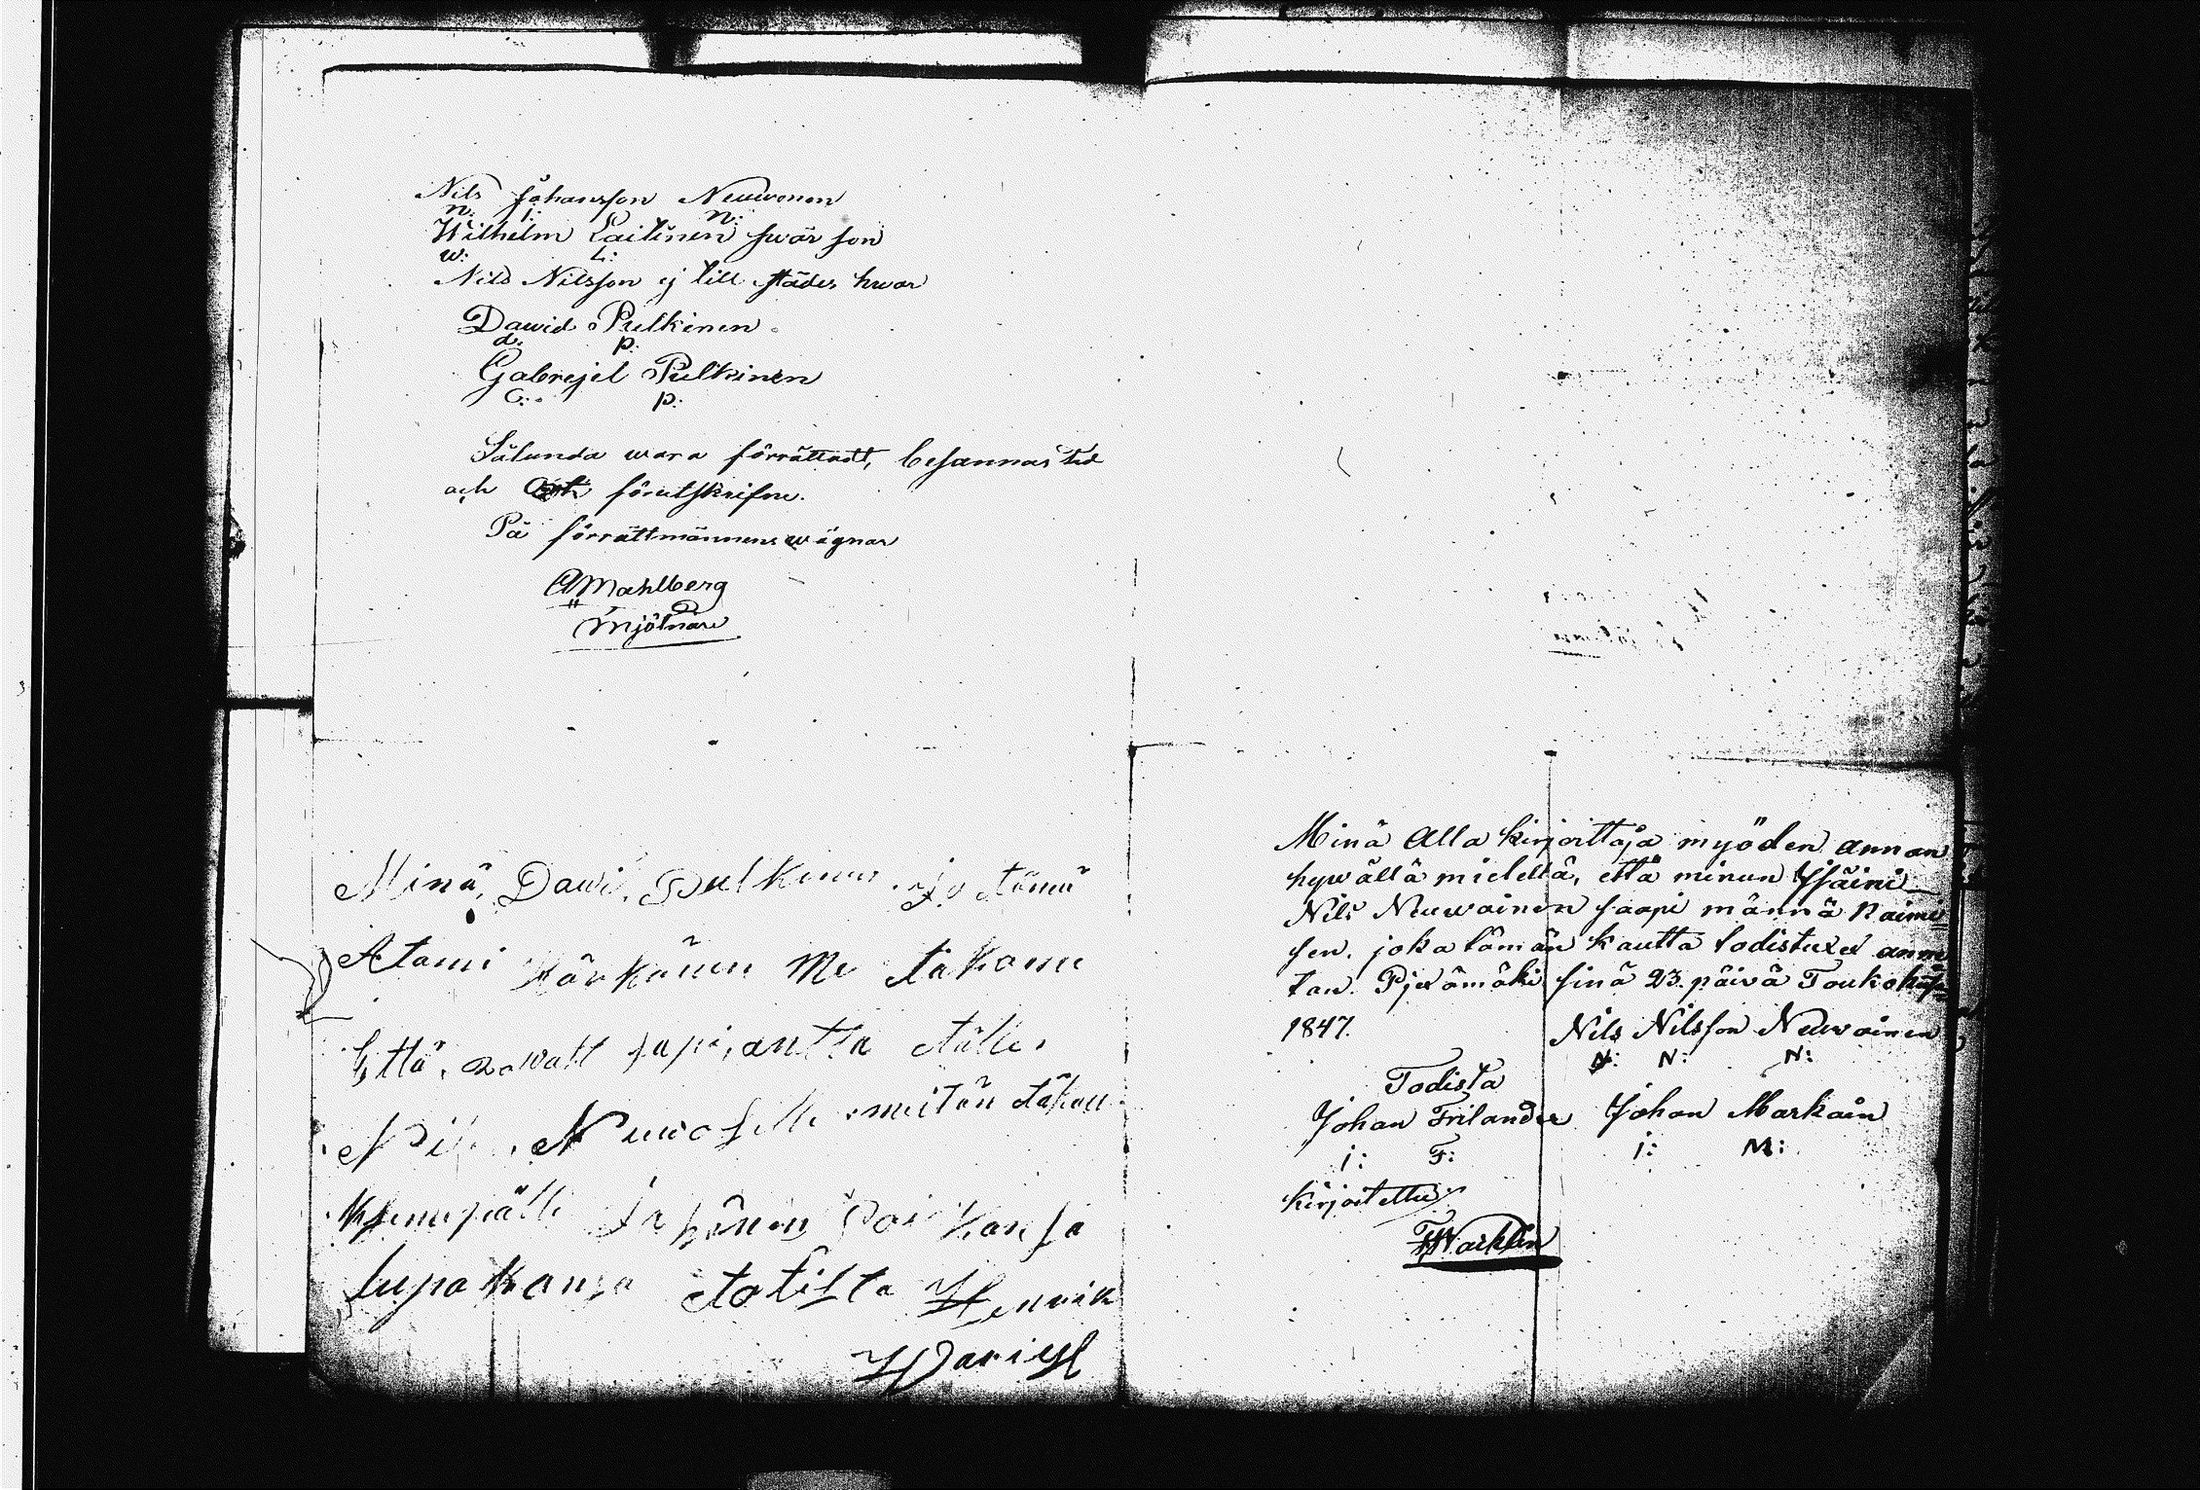 Nils Johansson Neuwonen
n: j: n:
Wilhelm Laitinen swär son
w: L:
Nils Nilsson ej till städes hwar
Dawid Pulkinen
d: p:
Gabrejel Pulkinen
G: p:
Sålunda wara förrättadt, besannas tid
och förutskrifne.
På förrättmännens wägnar
A Mahlberg
mjölnare
Minä Dawi Pulkinen Ja tämä
Atami Kärkänen Me takame
Että sapi, antta tälle
Nils Neuwoselle meitän täkau
lupa kansa totista Henrik
Minä Alla kirjoittaja myöden annan
hywällä mielellä, että minun Isäini
Nils Neuwoinen saapi männä Naimi
sen, joka tämän kautta todistuxex anne
tan. Pjexämäki sinä 23. päivä Toukokuusa
1847. Nils Nilsson Neuwoinen
N: N: N:
Todista
Johan Frilander Johan Markain
j: F: j: M:
kirjoitettu